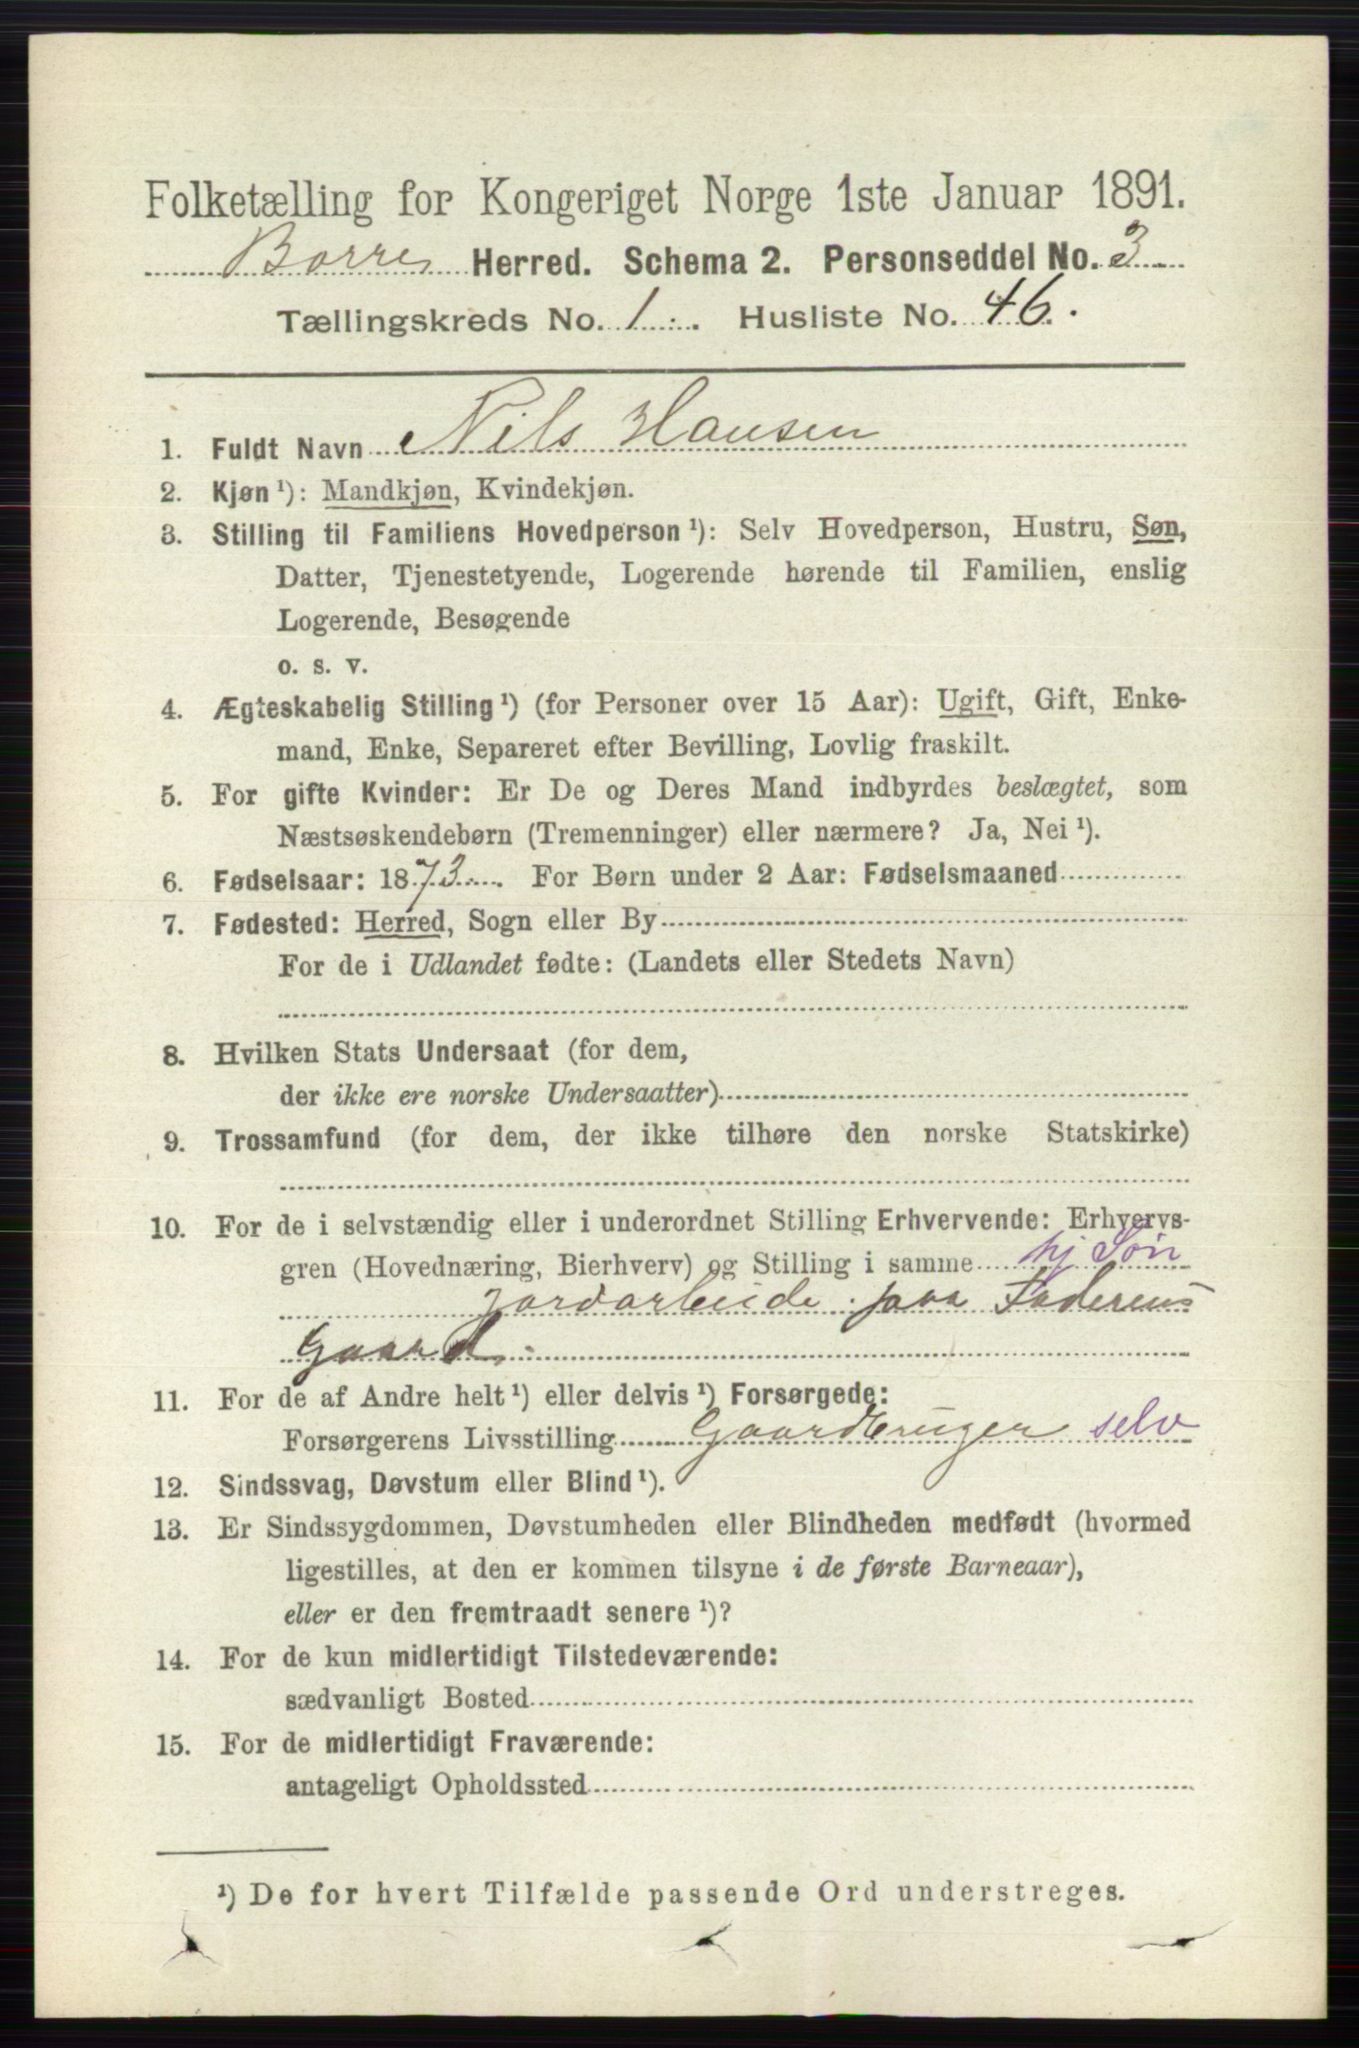 Folketælling for Kongeriget Norge 1ste Januar 1891.
Borre Herred. Schema 2. Personseddel No. 3
Tællingskreds No. 1. Husliste No. 46.
1. Fuldt Navn Nils Hansen
2. Kjøn ¹): Mandkjøn, Kvindekjøn.
3. Stilling til Familiens Hovedperson ¹): Selv Hovedperson, Hustru, Søn,
Datter, Tjenestetyende, Logerende hørende til Familien, enslig
Logerende, Besøgende
o. s. v.
4. Ægteskabelig Stilling ¹) (for Personer over 15 Aar): Ugift, Gift, Enke-
mand, Enke, Separeret efter Bevilling, Lovlig fraskilt.
5. For gifte Kvinder: Er De og Deres Mand indbyrdes beslægtet, som
Næstsøskendebørn (Tremenninger) eller nærmere? Ja, Nei ¹).
6. Fødselsaar: 1873. For Børn under 2 Aar: Fødselsmaaned
7. Fødested: Herred, Sogn eller By
For de i Udlandet fødte: (Landets eller Stedets Navn)
8. Hvilken Stats Undersaat (for dem,
der ikke ere norske Undersaatter)
9. Trossamfund (for dem, der ikke tilhøre den norske Statskirke)
10. For de i selvstændig eller i underordnet Stilling Erhvervende: Erhvervs-
gren (Hovednæring, Bierhverv) og Stilling i samme hj Søn
Jordarbeide paa Faderens
Gaard.
11. For de af Andre helt ¹) eller delvis ¹) Forsørgede:
Forsørgerens Livsstilling Gaardbruger selv
12. Sindssvag, Døvstum eller Blind ¹).
13. Er Sindssygdommen, Døvstumheden eller Blindheden medfødt (hvormed
ligestilles, at den er kommen tilsyne i de første Barneaar),
eller er den fremtraadt senere ¹)?
14. For de kun midlertidigt Tilstedeværende:
sædvanligt Bosted
15. For de midlertidigt Fraværende:
antageligt Opholdssted
¹) De for hvert Tilfælde passende Ord understreges.